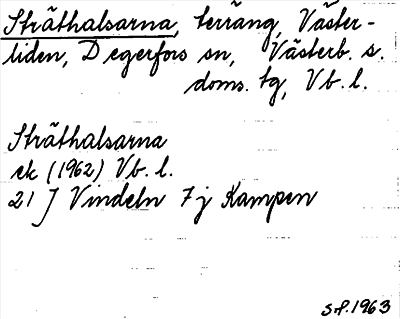 Stråthalsarna, terräng, Väster-
liden, Degerfors sn, Västerb. s.
doms. tg, Vb. l.
Stråthalsarna
ek (1962) Vb. l.
21 J Vindeln 7 j Kampen
S.P. 1963